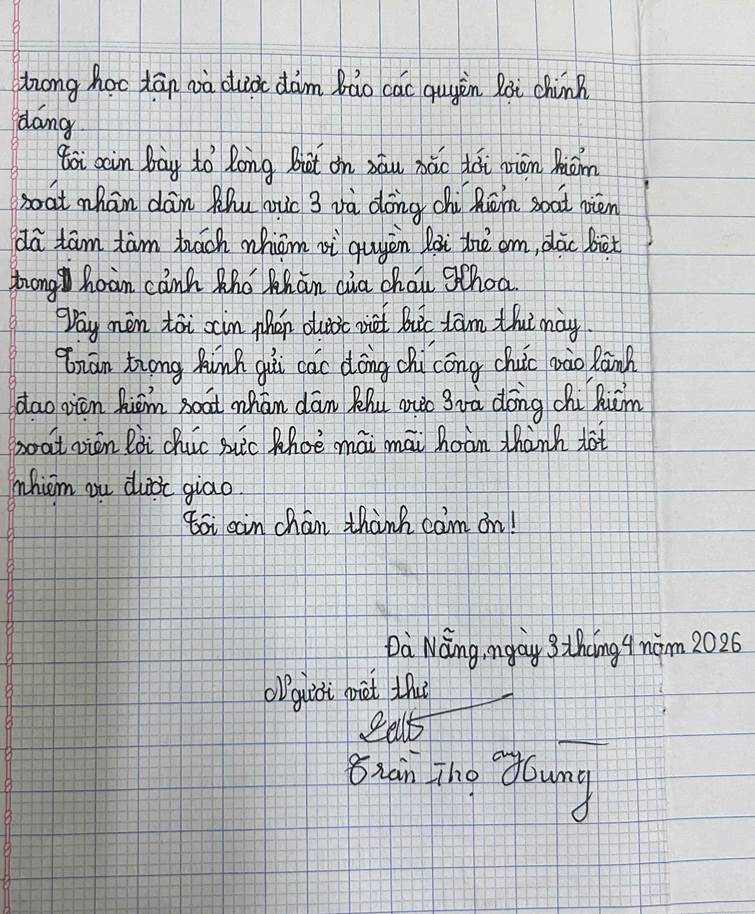 trong học tập và được đảm bảo các quyền lợi chính
đáng.
Tôi xin bày tỏ lòng biết ơn sâu sắc tới viện kiểm
soát nhân dân khu vực 3 và đồng chí kiểm soát viên
đã tâm tâm trách nhiệm vì quyền lợi trẻ em, đặc biệt
trong hoàn cảnh khó khăn của cháu Khoa.
Vậy nên tôi xin phép được viết bức tâm thư này.
Trân trọng kính gửi các đồng chí công chức vào lãnh
đạo viện kiểm soát nhân dân khu vực 3 và đồng chí kiểm
soát viên lời chúc sức khoẻ mãi mãi hoàn thành tốt
nhiệm vụ được giao.
Tôi xin chân thành cảm ơn!
Đà Nẵng, ngày 3 tháng 4 năm 2026
Người viết thư
Trần Thọ Hùng